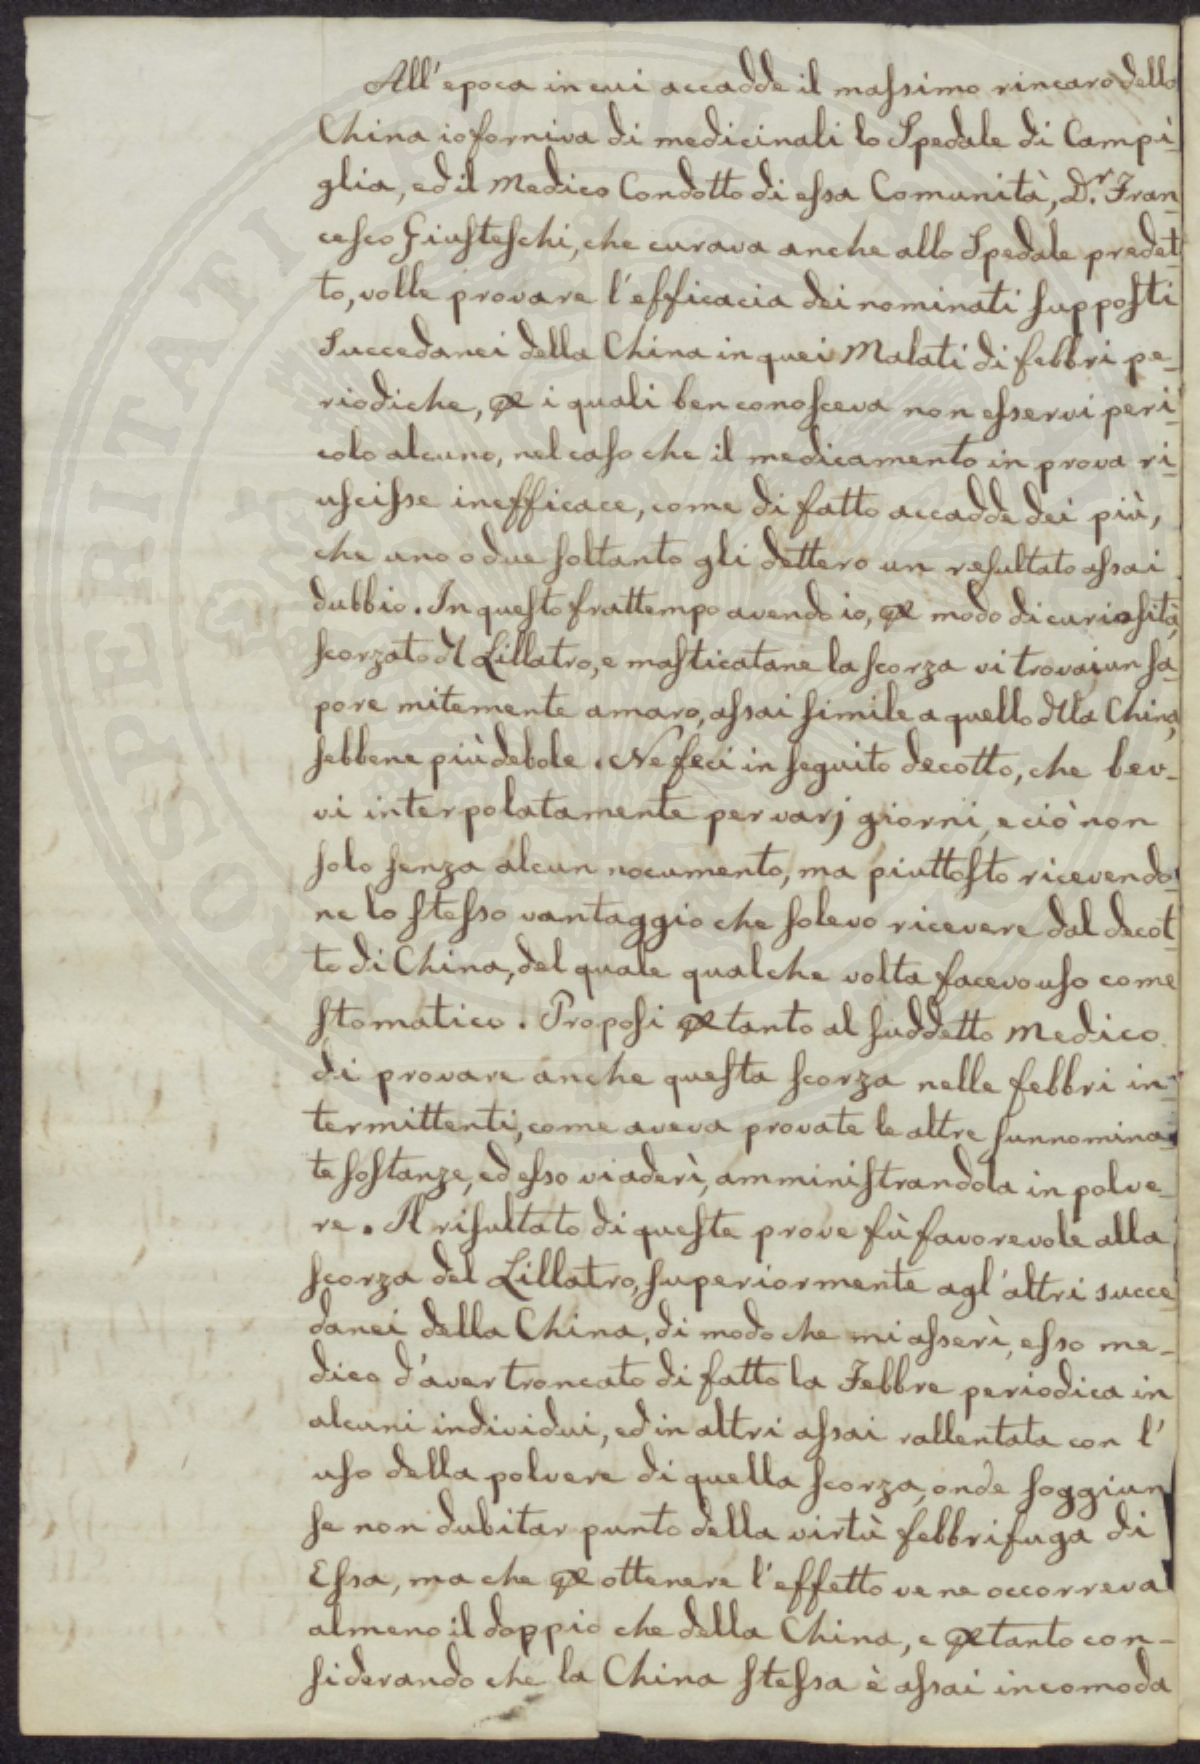 All'epoca in cui accadde il massimo rincaro della
China io forniva di medicinali lo Spedale di Campi-
glia, ed il Medico Condotto di essa Comunità, D.r Fran-
cesco Giusteschi, che curava anche allo Spedale predet-
to, volle provare l'efficacia dei nominati supposti
Succedanei della China in quei Malati di febbri pe-
riodiche, per i quali ben conosceva non esservi peri-
colo alcuno, nel caso che il medicamento in prova ri-
uscisse inefficace, come di fatto accadde dei più,
che uno o due soltanto gli dettero un resultato assai
dubbio. In questo frattempo avendo io, per modo di curiosità,
scorzato del Lillatro, e masticatane la scorza vi trovai un sa-
pore mitemente amaro, assai simile a quello della China,
sebbene più debole. Ne feci in seguito decotto, che bev-
vi interpolatamente per varj giorni, e ciò non
solo senza alcun nocumento, ma piuttosto ricevendo-
ne lo stesso vantaggio che solevo ricevere dal decot-
to di China, del quale qualche volta facevo uso come
stomatico. Proposi pertanto al suddetto Medico
di provare anche questa scorza nelle febbri in-
termittenti, come aveva provate le altre sunnomina-
te sostanze, ed esso vi aderì, amministrandola in polve-
re. Il risultato di queste prove fù favorevole alla
scorza del Lillatro, superiormente agl'altri succe
danei della China, di modo che mi asserì, esso me-
dico d'aver troncato di fatto la Febbre periodica in
alcuni individui, ed in altri assai rallentata con l'
uso della polvere di quella scorza, onde soggiun
se non dubitar punto della virtù febbrifuga di
Essa, ma che per ottenere l'effetto ve ne occorreva
almeno il doppio che della China, e pertanto con-
siderando che la China stessa è assai incomoda
PROSPERITATI PUBLICAE